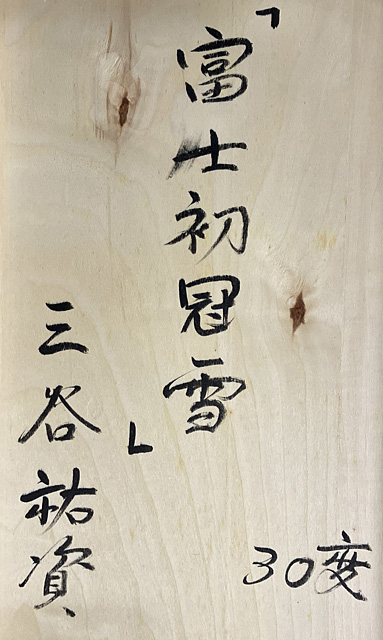 「富士初冠雪」
三谷祐資
30度